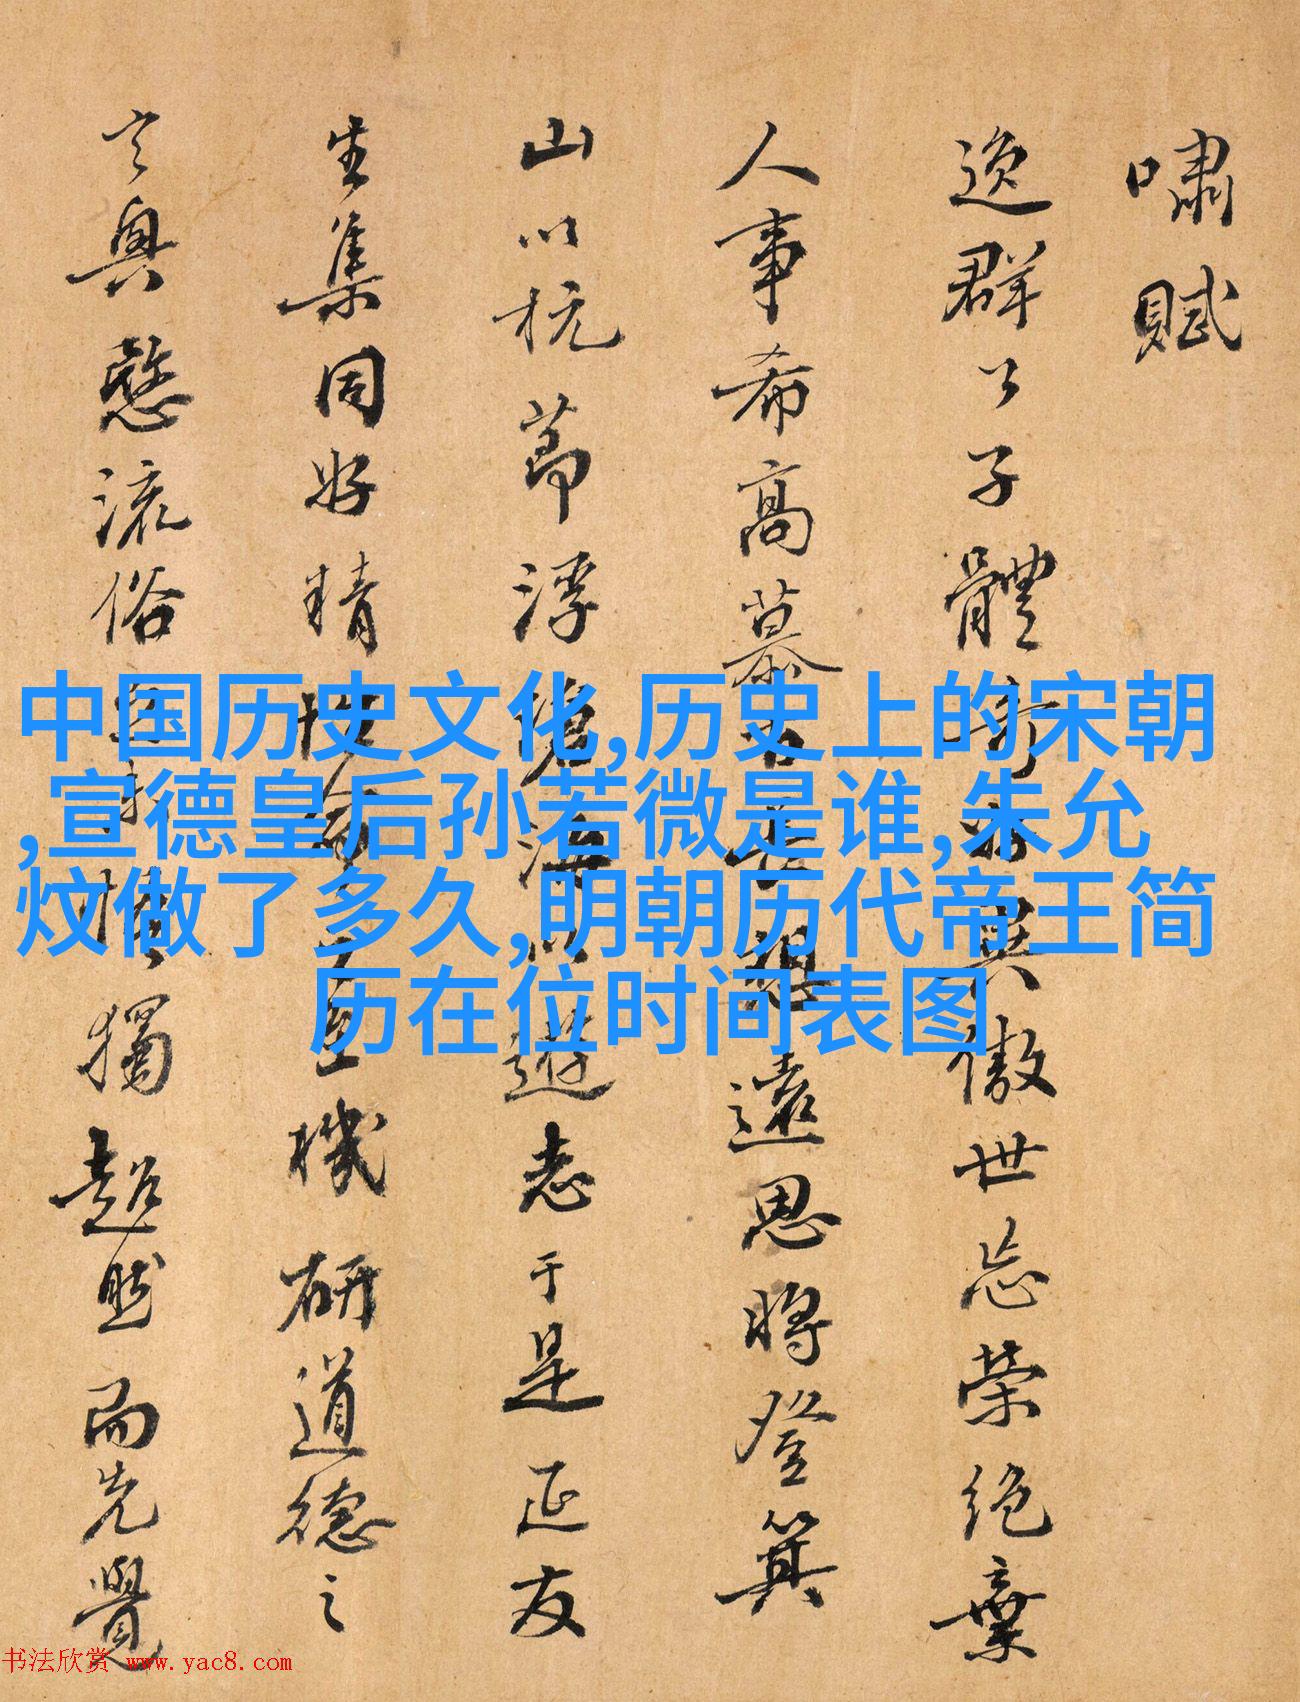 嘯賦
逸群公子體奇好異傲世忘榮絕棄
人事希高慕古長想遠思將登箕
山以抗節浮滄海以遊志于是延友
生集同好精性命之至機研道德之
玄奧愍流俗未悟獨超然而先覺
中国历史文化,历史上的宋朝
,宣德皇后孙若微是谁,朱允
炆做了多久,明朝历代帝王简
历在位时间表图
书法欣赏 www.yac8.com